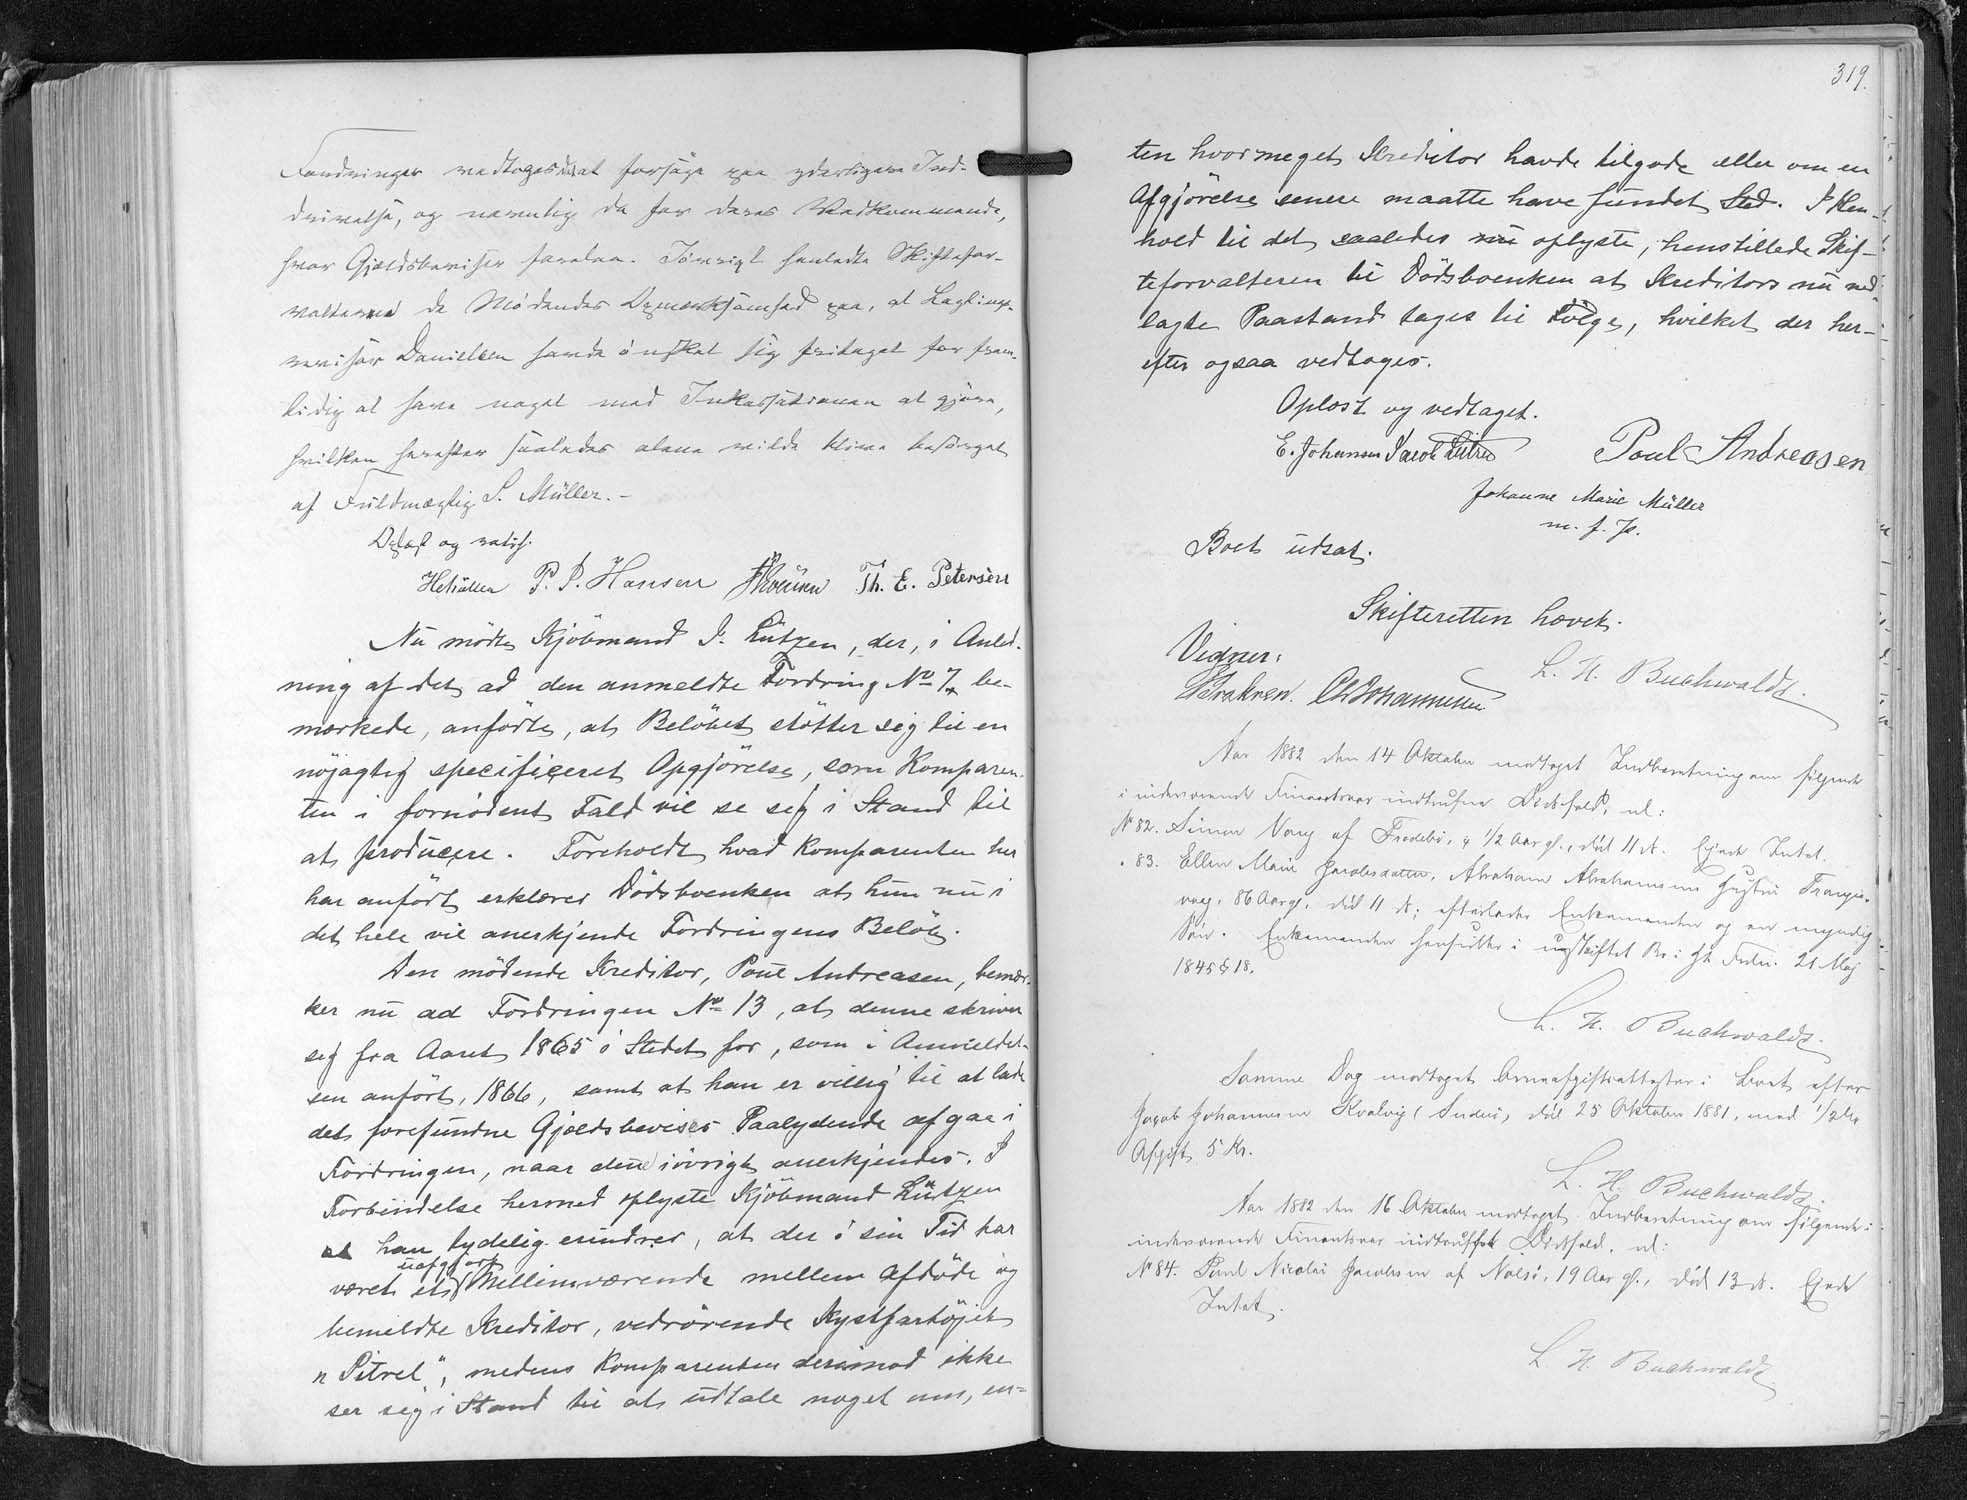 Fordringer vedtoges det at forsöge paa yderligere Ind-
drivelse, og navnlig da for deres Vedkommende,
hvor Gjældsbeviser forelaa. Iövrigt henledte Skiftefor-
valteren de Mödendes Opmærksomhed paa, at Lagtings-
revisor Danielsen havde önsket sig fritaget for frem-
tidig at have noget med Inkassationen at gjöre,
hvilken herefter saaledes alene vilde blive besörget
af Fuldmægtig S. Müller.-
Oplæst og ratif.
HMüller P. P. Hansen Th. E. Petersen
Nu mödte Kjöbmand J. Lützen, der, i Anled-
ning af det ad den anmeldte Fordring No 7 be-
mærkede, anförte, at Belöbet stötter sig til en
nöjagtig specificeret Opgjörelse, som Komparen-
ten i fornödent Fald vil se sig i Stand til
at producere. Foreholdt hvad Komparenten her
har anfört erklærer Dödsboenken at hun nu i
det hele vil anerkjende Fordringens Belöb.
Den mödende Kreditor, Poul Andreasen, bemær-
ker nu ad Fordringen No 13, at denne skriver
sig fra Aaret 1865 i Stedet for, som i Anmeldel-
sen anfört, 1866, samt at han er villig til at lade
det forefundne Gjældsbevises Paalydende afgaa i
Fordringen, naar den iövrigt anerkjendes. I
Forbindelse hermed oplyste Kjöbmand Lützen
at han tydelig erindrer, at der i sin Tid har
uafgjort
været et Mellemværende mellem Afdöde og
bemeldte Kreditor, vedrörende Kystfartöjet
"Pitrel", medens Komparenten derimod ikke
ser sig i Stand til at udtale noget om, en-
319.
ten hvormeget Kreditor havde tilgode eller om en
Afgjörelse senere maatte have fundet Sted. I Hen-
hold til det saaledes nu oplyste, henstillede Skif-
teforvalteren til Dödsboenken at Kreditors nu ned-
lagte Paastand tages til Fölge, hvilket der her-
efter ogsaa vedtages.
Oplæst og vedtaget.
E. Johansen Jacob Lützen Poul Andreasen
Johanne Marie Müller
m. f. P.
Boet udsat.
Skifteretten hævet.
L. H. Buchwaldt.
Vidner:
Aar 1882 den 14 Oktober modtoges Indberetning om fölgende
i indeværende Finantsaar indtrufne Dödsfald, nl:
No 82. Simon af 1/2 Aar gl., död 11 ds. Ejede Intet.
" 83. Ellen Marie Jacobsdatter, Abraham Abrahamsens Hustru Trangis-
vaag, 86 Aar gl. död 11 ds; efterlader Enkemanden og en myndig
Sön. Enkemanden hensidder i uskiftet Bo i Ht. Frdn. 21 Maj
1845 § 18.
L. H. Buchwaldt.
Samme Dag modtoget Arveafgiftsattester i Boet efter
Jacob Johannesen Kvalvig i Sudero, död 25 Oktober 1881, med 1/2 %
Afgift 5 Kr.
L. H. Buchwaldt.
Aar 1882 den 16 Oktober modtoges Indberetning om fölgende i
indeværende Finantsaar indtrufset Dödsfald, nl:
No 84. Poul Nicolai Jacobsen af Nolsö, 19 Aar gl., död 13 ds. Ejede
Intet.
L. H. Buchwaldt.